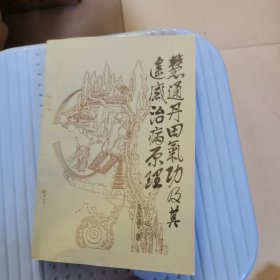 慧通丹田氣功及其
遥感治病原理
著